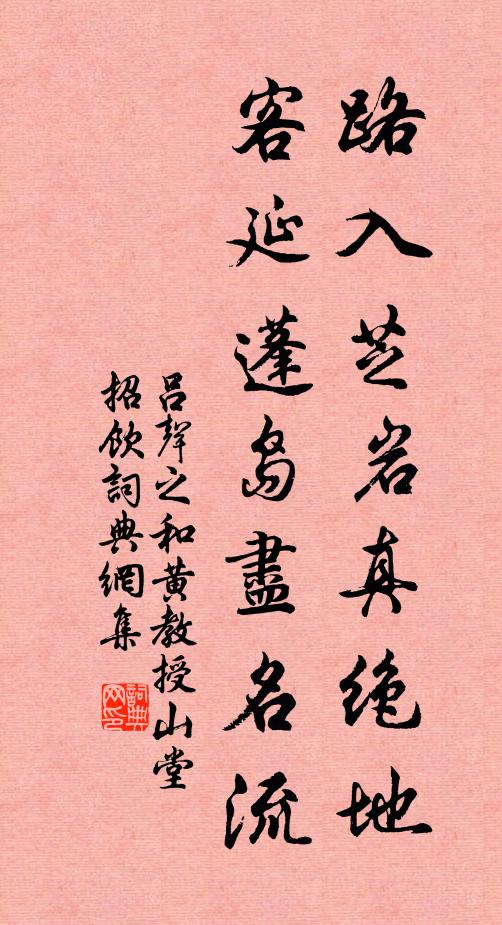 路入芝岩真绝地
客延蓬岛盡名流
吕聲之和黄教授山堂
招飲詞典網集
詞典网印